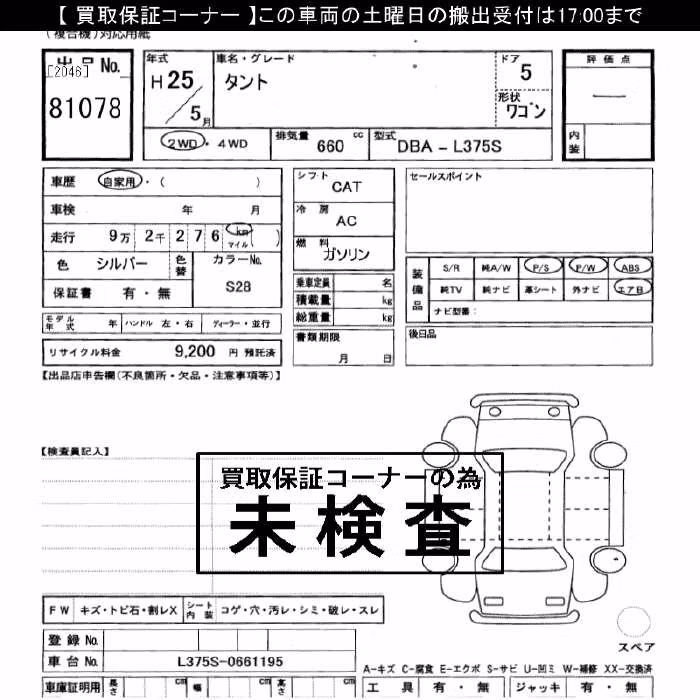 【 買取保証コーナー 】この車両の土曜日の搬出受付は17:00まで
(複合機)対応用紙
出品 No.
[2046]
81078
年式
H25
5月
車名・グレード
タント
ドア
5
形状
ワゴン
評価点
―
内装
2WD・4WD
排気量 660 cc
型式 DBA - L375S
車歴 自家用・( )
車検 年 月
走行 9万 2千 2 7 6 km マイル ( )
色 シルバー 色替 カラーNo.
保証書 有・無 S28
モデル年式 年 ハンドル 左・右 ディーラー・並行
リサイクル料金 9,200 円 預託済
シフト CAT
冷房 AC
燃料 ガソリン
乗車定員 名
積載量 kg
総重量 kg
書類期限
月 日
セールスポイント
装備品
S/R 純A/W P/S P/W ABS
純TV 純ナビ 革シート 外ナビ エアB
ナビ型番:
後日品
【出品店申告欄(不良箇所・欠品・注意事項等)】
【検査員記入】
買取保証コーナーの為
未検査
FW キズ・トビ石・割レX シート内装 コゲ・穴・汚レ・シミ・破レ・スレ
登録 No.
車台 No. L375S-0661195
車庫証明用 長さ cm 幅 cm 高さ cm
スペア
A-キズ C-腐食 E-エクボ S-サビ U-凹ミ W-補修 XX-交換済
工具 有・無 ジャッキ 有・無